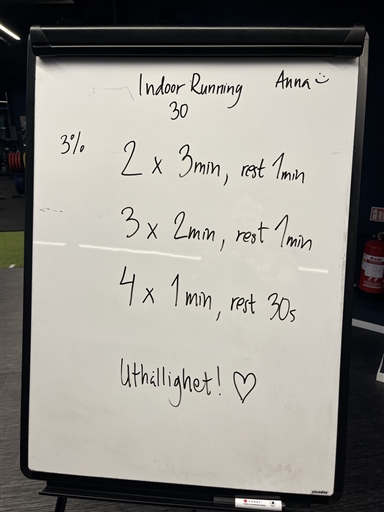 Indoor Running Anna
30
3%
2 x 3min, rest 1min
3 x 2min, rest 1min
4 x 1min, rest 30s
Uthållighet! ♡